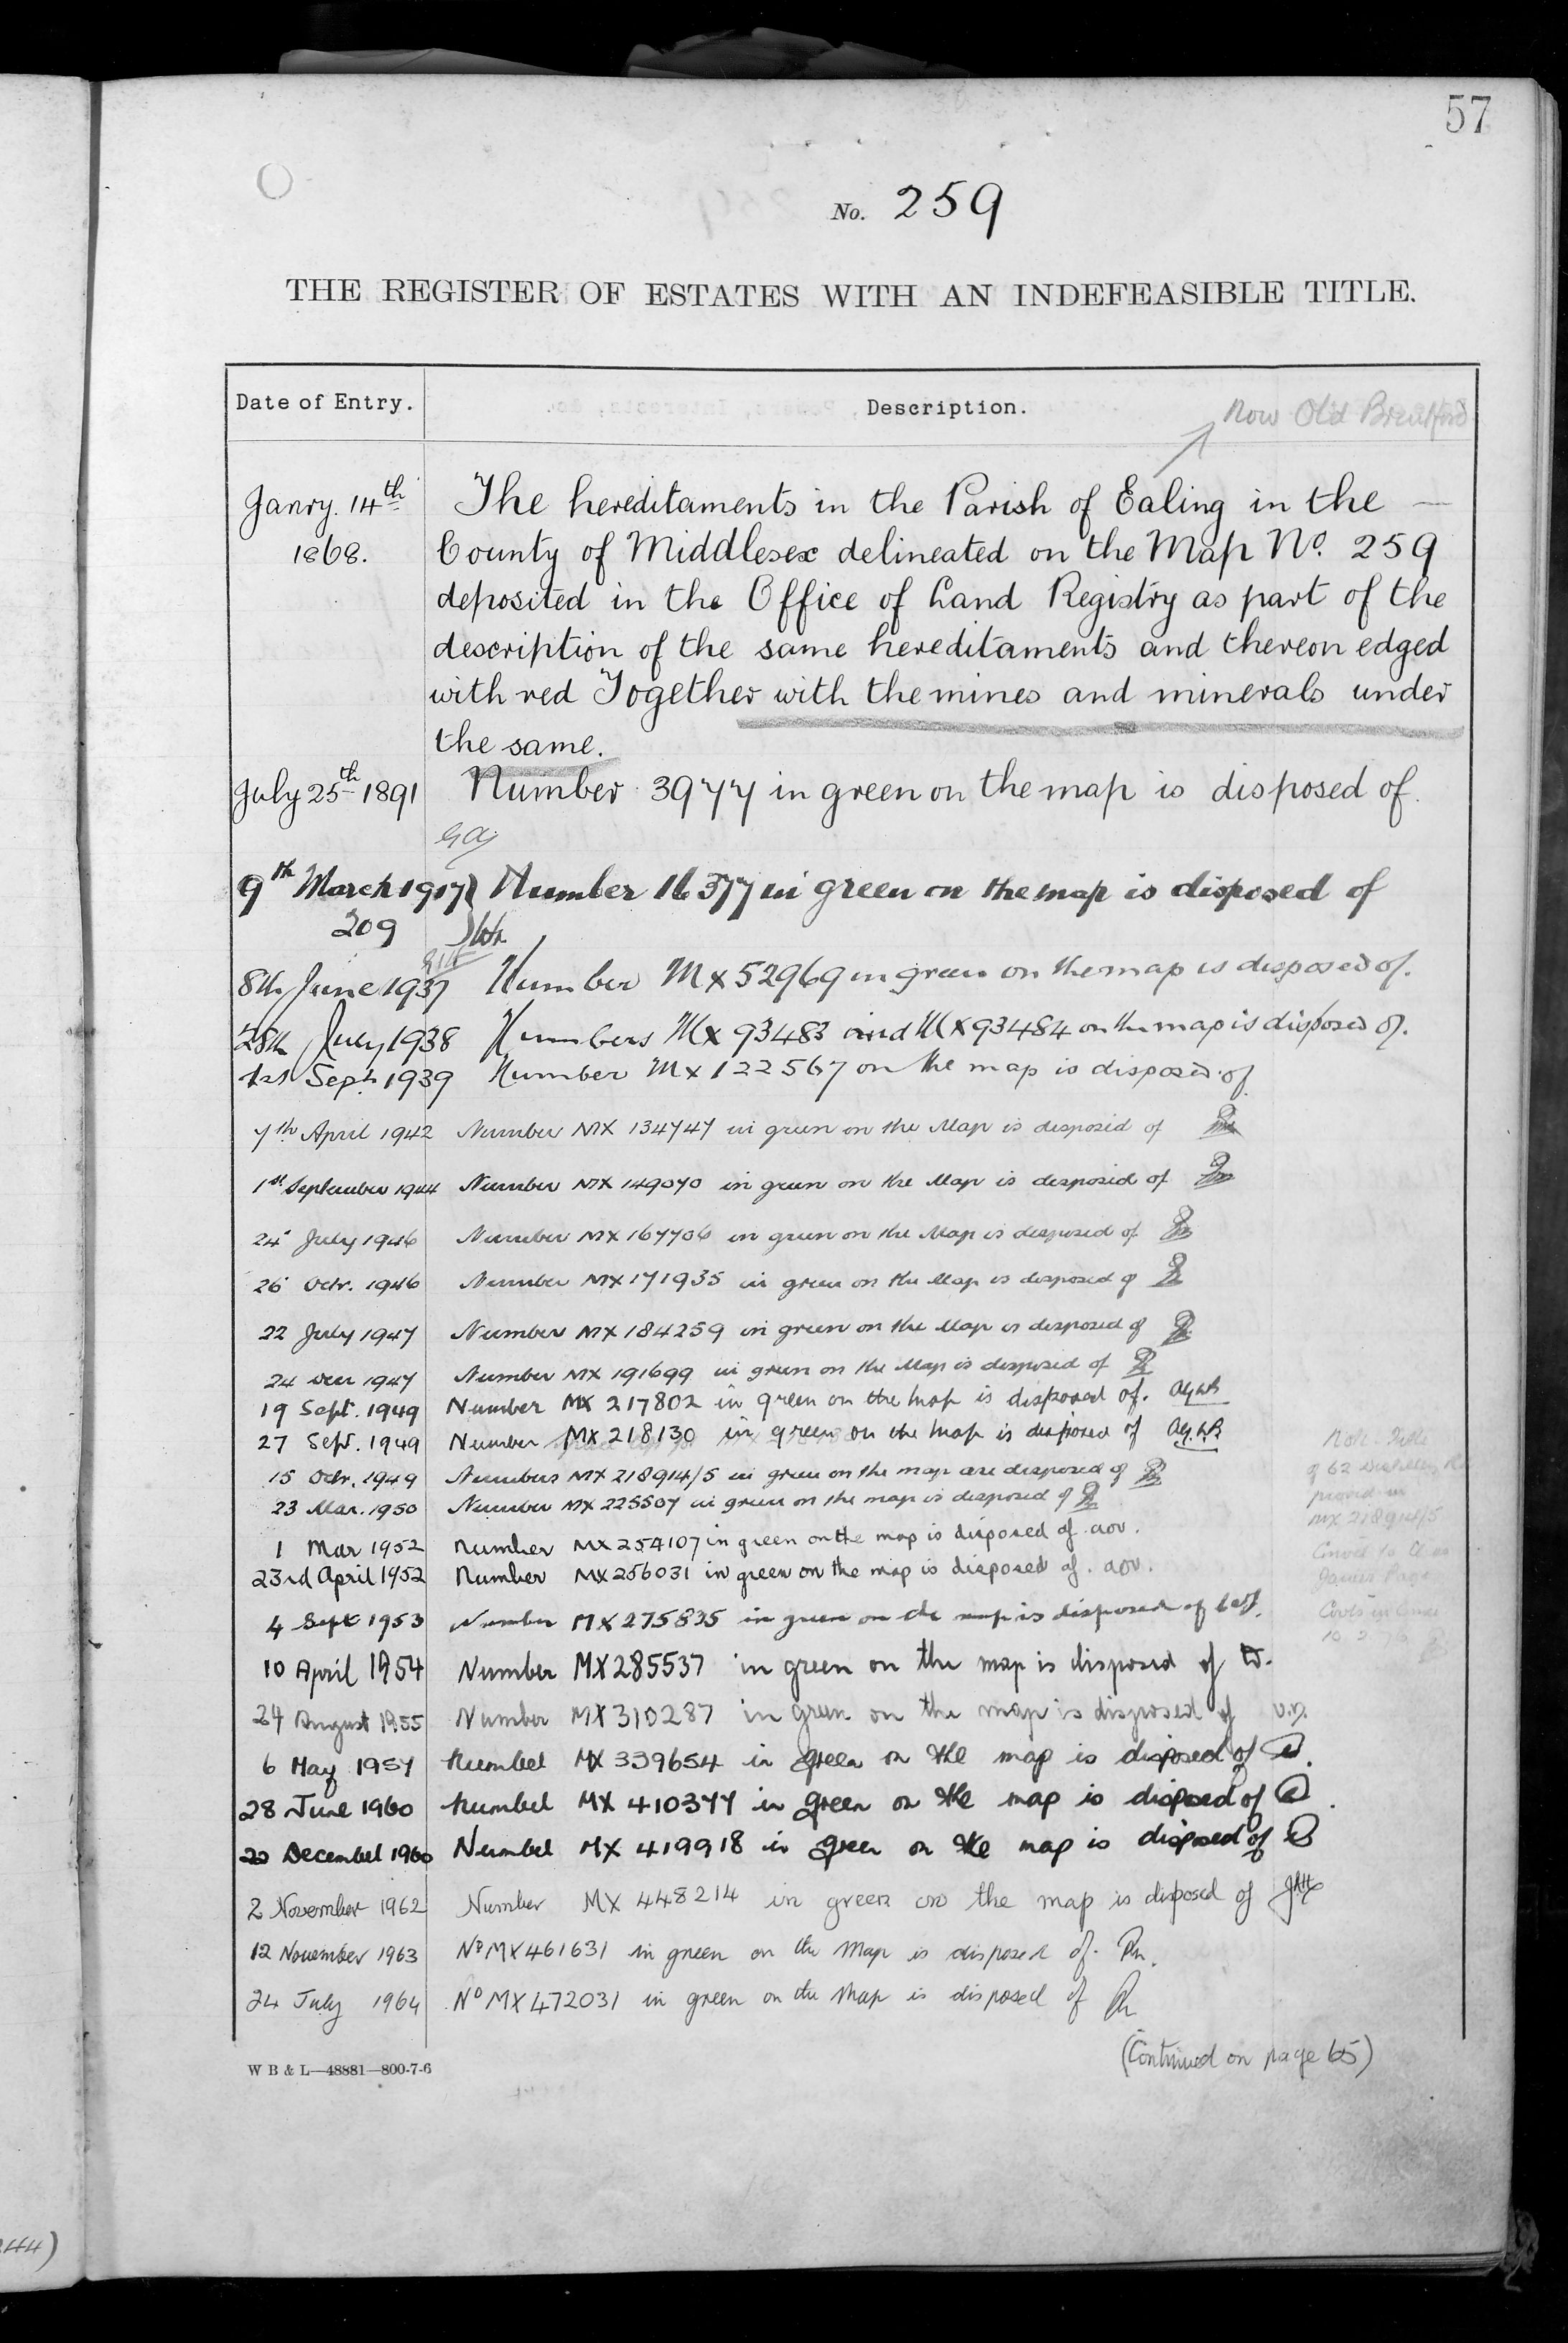 57
No. 259
THE REGISTER OF ESTATES WITH AN INDEFEASIBLE TITLE.
Date of Entry. Description. Now Old Brentford
Janry. 14th 1868. The hereditaments in the Parish of Ealing in the
County of Middlesex delineated on the Map No. 259
deposited in the Office of Land Registry as part of the
description of the same hereditaments and thereon edged
with red Together with the mines and minerals under
the same.
July 25th 1891 Number 3977 in green on the map is disposed of.
9th March 1917 Number 16377 in green on the map is disposed of
209
8th June 1937 Number Mx 52969 in green on the map is disposed of.
28th July 1938 Numbers Mx 93483 and Mx 93484 on the map is disposed of.
1st Sept. 1939 Number Mx 122567 on the map is disposed of
7th April 1942 Number MX 134747 in green on the Map is disposed of
1st September 1944 Number MX 149070 in green on the Map is disposed of
24 July 1946 Number MX 167706 in green on the Map is disposed of
26 Octr. 1946 Number MX 171935 in green on the Map is disposed of
22 July 1947 Number MX 184259 in green on the Map is disposed of
24 Dec 1947 Number MX 191699 in green on the Map is disposed of
19 Sept. 1949 Number MX 217802 in green on the map is disposed of.
27 Sept. 1949 Number MX 218130 in green on the map is disposed of
15 Octr. 1949 Numbers MX 218914/5 in green on the map are disposed of
23 Mar. 1950 Number MX 225507 in green on the map is disposed of
1 Mar 1952 Number MX 254107 in green on the map is disposed of. aov.
23rd April 1952 Number MX 256031 in green on the map is disposed of. aov.
4 Sept 1953 Number MX 275835 in green on the map is disposed of
10 April 1954 Number MX 285537 in green on the map is disposed of
24 August 1955 Number MX 310287 in green on the map is disposed of
6 May 1957 Number MX 339654 in green on the map is disposed of
28 June 1960 Number MX 410377 in green on the map is disposed of
20 December 1960 Number MX 419918 in green on the map is disposed of
2 November 1962 Number MX 448214 in green on the map is disposed of
12 November 1963 No MX 461631 in green on the Map is disposed of.
24 July 1964 No MX 472031 in green on the Map is disposed of
(Continued on page 65)
W B & L—48881—800-7-6
MX 218914/5
James Page
44)